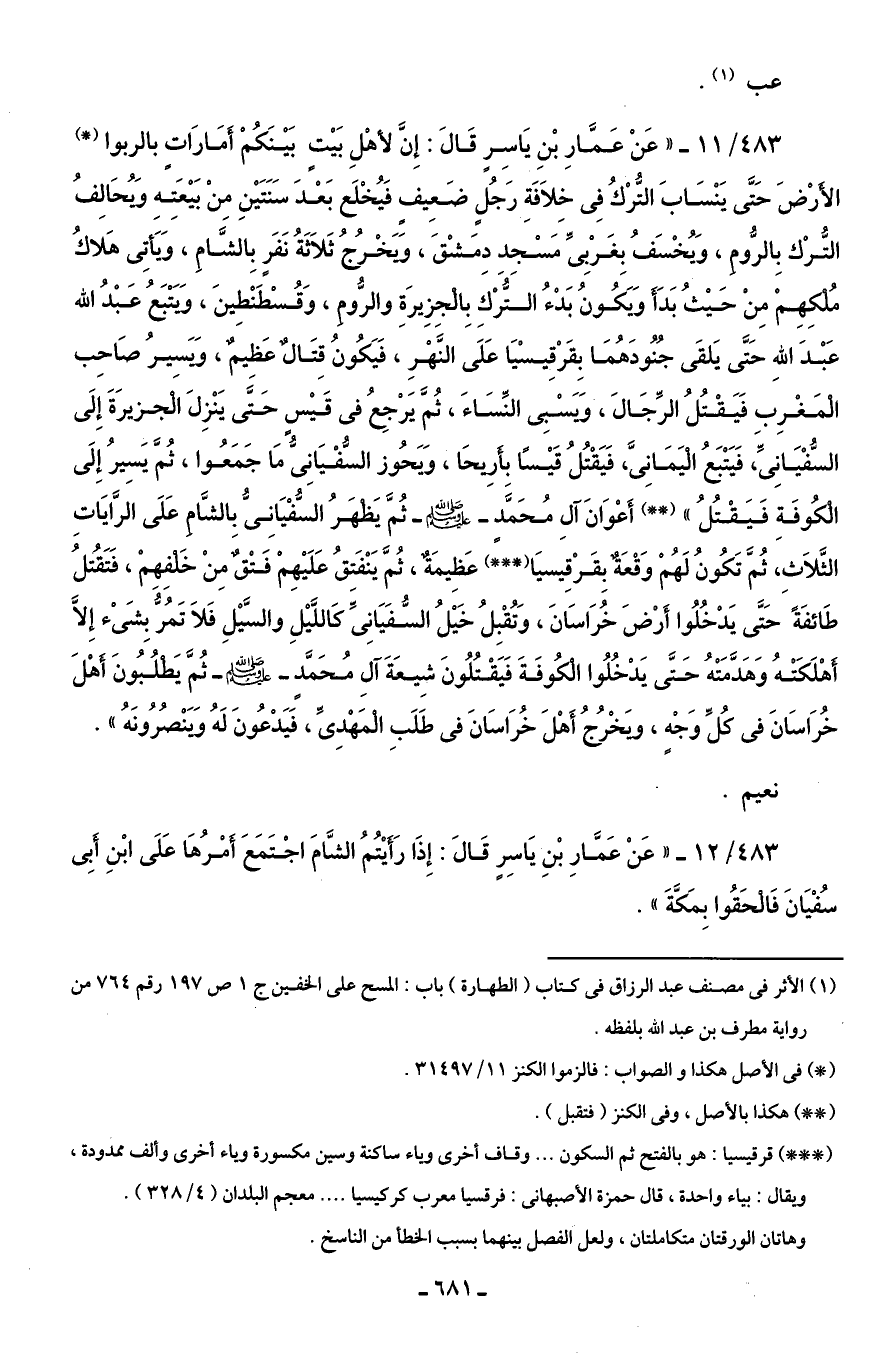 عب (١) .
٤٨٣/ ١١ ـ « عَنْ عَمَّارِ بْنِ يَاسِرٍ قَالَ : إِنَّ لأَهْلِ بَيْتِ بَيْنَكُمْ أَمَارَاتٍ بالربوا (*)
الأَرْضَ حَتَّى يَنْسَابَ التُّرْكُ فِى خِلاَفَةِ رَجُلٍ ضَعِيفٍ فَيُخْلَع بَعْدَ سَنَتَيْنِ مِنْ بَيْعَتِهِ وَيُحَالِفُ
التُّرْكَ بِالرُّومِ ، وَيُخْسَفُ بِغَرْبِىِّ مَسْجِدِ دِمَشْقَ ، وَيَخْرُجُ ثَلاَثَةُ نَفَرٍ بِالشَّامِ ، وَيَأتِى هَلاَكُ
مُلْكِهِمْ مِنْ حَيْثُ بَدَأَ وَيَكُونُ بَدْءُ التُّرْكِ بِالْجَزِيرَةِ والرُّومِ ، وَقُسْطَنْطِينَ ، وَيَتْبَعُ عَبْدُ الله
عَبْدَ اللهِ حَتَّى يَلقَى جُنُودَهُمَا بِقَرْقِيسْيَا عَلَى النَّهْرِ ، فَيَكُونُ قِتَالٌ عَظِيمٌ ، وَيَسِيرُ صَاحِب
الْمَغْرِبِ فَيَقْتُلُ الرِّجَالَ ، وَيَسْبِى النِّسَاءَ ، ثُمَّ يَرْجِعُ فِى قَيْسٍ حَتَّى يَنْزِلَ الْجَزِيرَةَ إِلَى
السُّفْيَانِىِّ، فَيَتْبَعُ الْيَمَانِىَّ، فَيَقْتُلُ قَيْسًا بِأَرِيحَا ، وَيَحُوز السُّفْيَانِىُّ مَا جَمَعُوا ، ثُمَّ يَسِيرُ إِلَى
الْكُوفَةِ فَيَقْتُلُ » (**) أَعْوَانَ آلِ مُحَمَّدٍ ـ ﷺ ـ ثُمَّ يَظْهَرُ السُّفْيَانِىُّ بِالشَّامِ عَلَى الرَّايَاتِ
الثَّلاَثِ، ثُمَّ تَكُونُ لَهُمْ وَقْعَةٌ بِقَرْقِيسيَا(***) عَظِيمَةٌ ، ثُمَّ يَنْفَتِقُ عَلَيْهِمْ فَتْقٌ مِنْ خَلْفِهِمْ ، فَتَقْتُلُ
طَائِفَةً حَتَّى يَدْخُلُوا أَرْضَ خُرَاسَانَ ، وَتُقْبِلُ خَيْلُ السُّفْيَانِىِّ كَاللَّيْلِ والسَّيْلِ فَلاَ تَمُرُّ بِشَىْءٍ إِلاَّ
أَهْلَكَتْهُ وَهَدَّمَتْهُ حَتَّى يَدْخُلُوا الْكُوفَةَ فَيَقْتُلُونَ شِيعَةَ آلِ مُحَمَّدٍ ـ ﷺ ـ ثُمَّ يَطْلُبُونَ أَهْلَ
خُرَاسَانَ فِى كُلِّ وَجْهٍ ، وَيَخْرُجُ أَهْلَ خُرَاسَانَ فِى طَلَبِ الْمَهْدِىِّ ، فَيَدْعُونَ لَهُ وَيَنْصُرُونَهُ » .
نعيم .
٤٨٣/ ١٢ ـ « عَنْ عَمَّارِ بْنِ يَاسِرٍ قَالَ : إِذَا رَأَيْتُمُ الشَّامَ اجْتَمَعَ أَمْرُهَا عَلَى ابْنِ أَبِى
سُفْيَانَ فَالْحَقُوا بِمَكَّةَ » .
(١) الأثر فى مصنف عبد الرزاق فى كتاب ( الطهارة ) باب : المسح على الخفين ج ١ ص ١٩٧ رقم ٧٦٤ من
رواية مطرف بن عبد الله بلفظه .
(*) فى الأصل هكذا و الصواب : فالزموا الكنز ١١/ ٣١٤٩٧ .
(**) هكذا بالأصل ، وفى الكنز ( فتقبل ) .
(***) قرقيسيا : هو بالفتح ثم السكون ... وقاف أخرى وياء ساكنة وسين مكسورة وياء أخرى وألف ممدودة ،
ويقال : بياء واحدة ، قال حمزة الأصبهانى : فرقسيا معرب كركيسيا .... معجم البلدان ( ٤/ ٣٢٨ ) .
وهاتان الورقتان متكاملتان ، ولعل الفصل بينهما بسبب الخطأ من الناسخ .
ـ ٦٨١ ـ